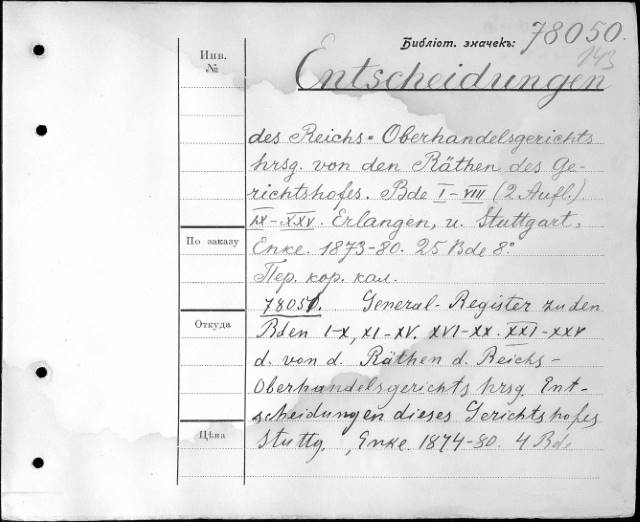 Библіот. значекъ: 78050.
143
Инв.
№
Entscheidungen
des Reichs-Oberhandelsgerichts
hrsg. von den Räthen des Ge-
richtshofes. Bde I-VIII (2 Aufl.)
IX-XXV. Erlangen, u. Stuttgart,
По заказу
Enke. 1873-80. 25 Bde 8°
Пер. кор. кал.
78051. General-Register zu den
Откуда
Bden I-X, XI-XV. XVI-XX. XXI-XXV
d. von d. Räthen d. Reichs-
Oberhandelsgerichts hrsg. Ent-
scheidungen dieses Gerichtshofes
Цѣна
Stuttg., Enke. 1874-80. 4 Bde